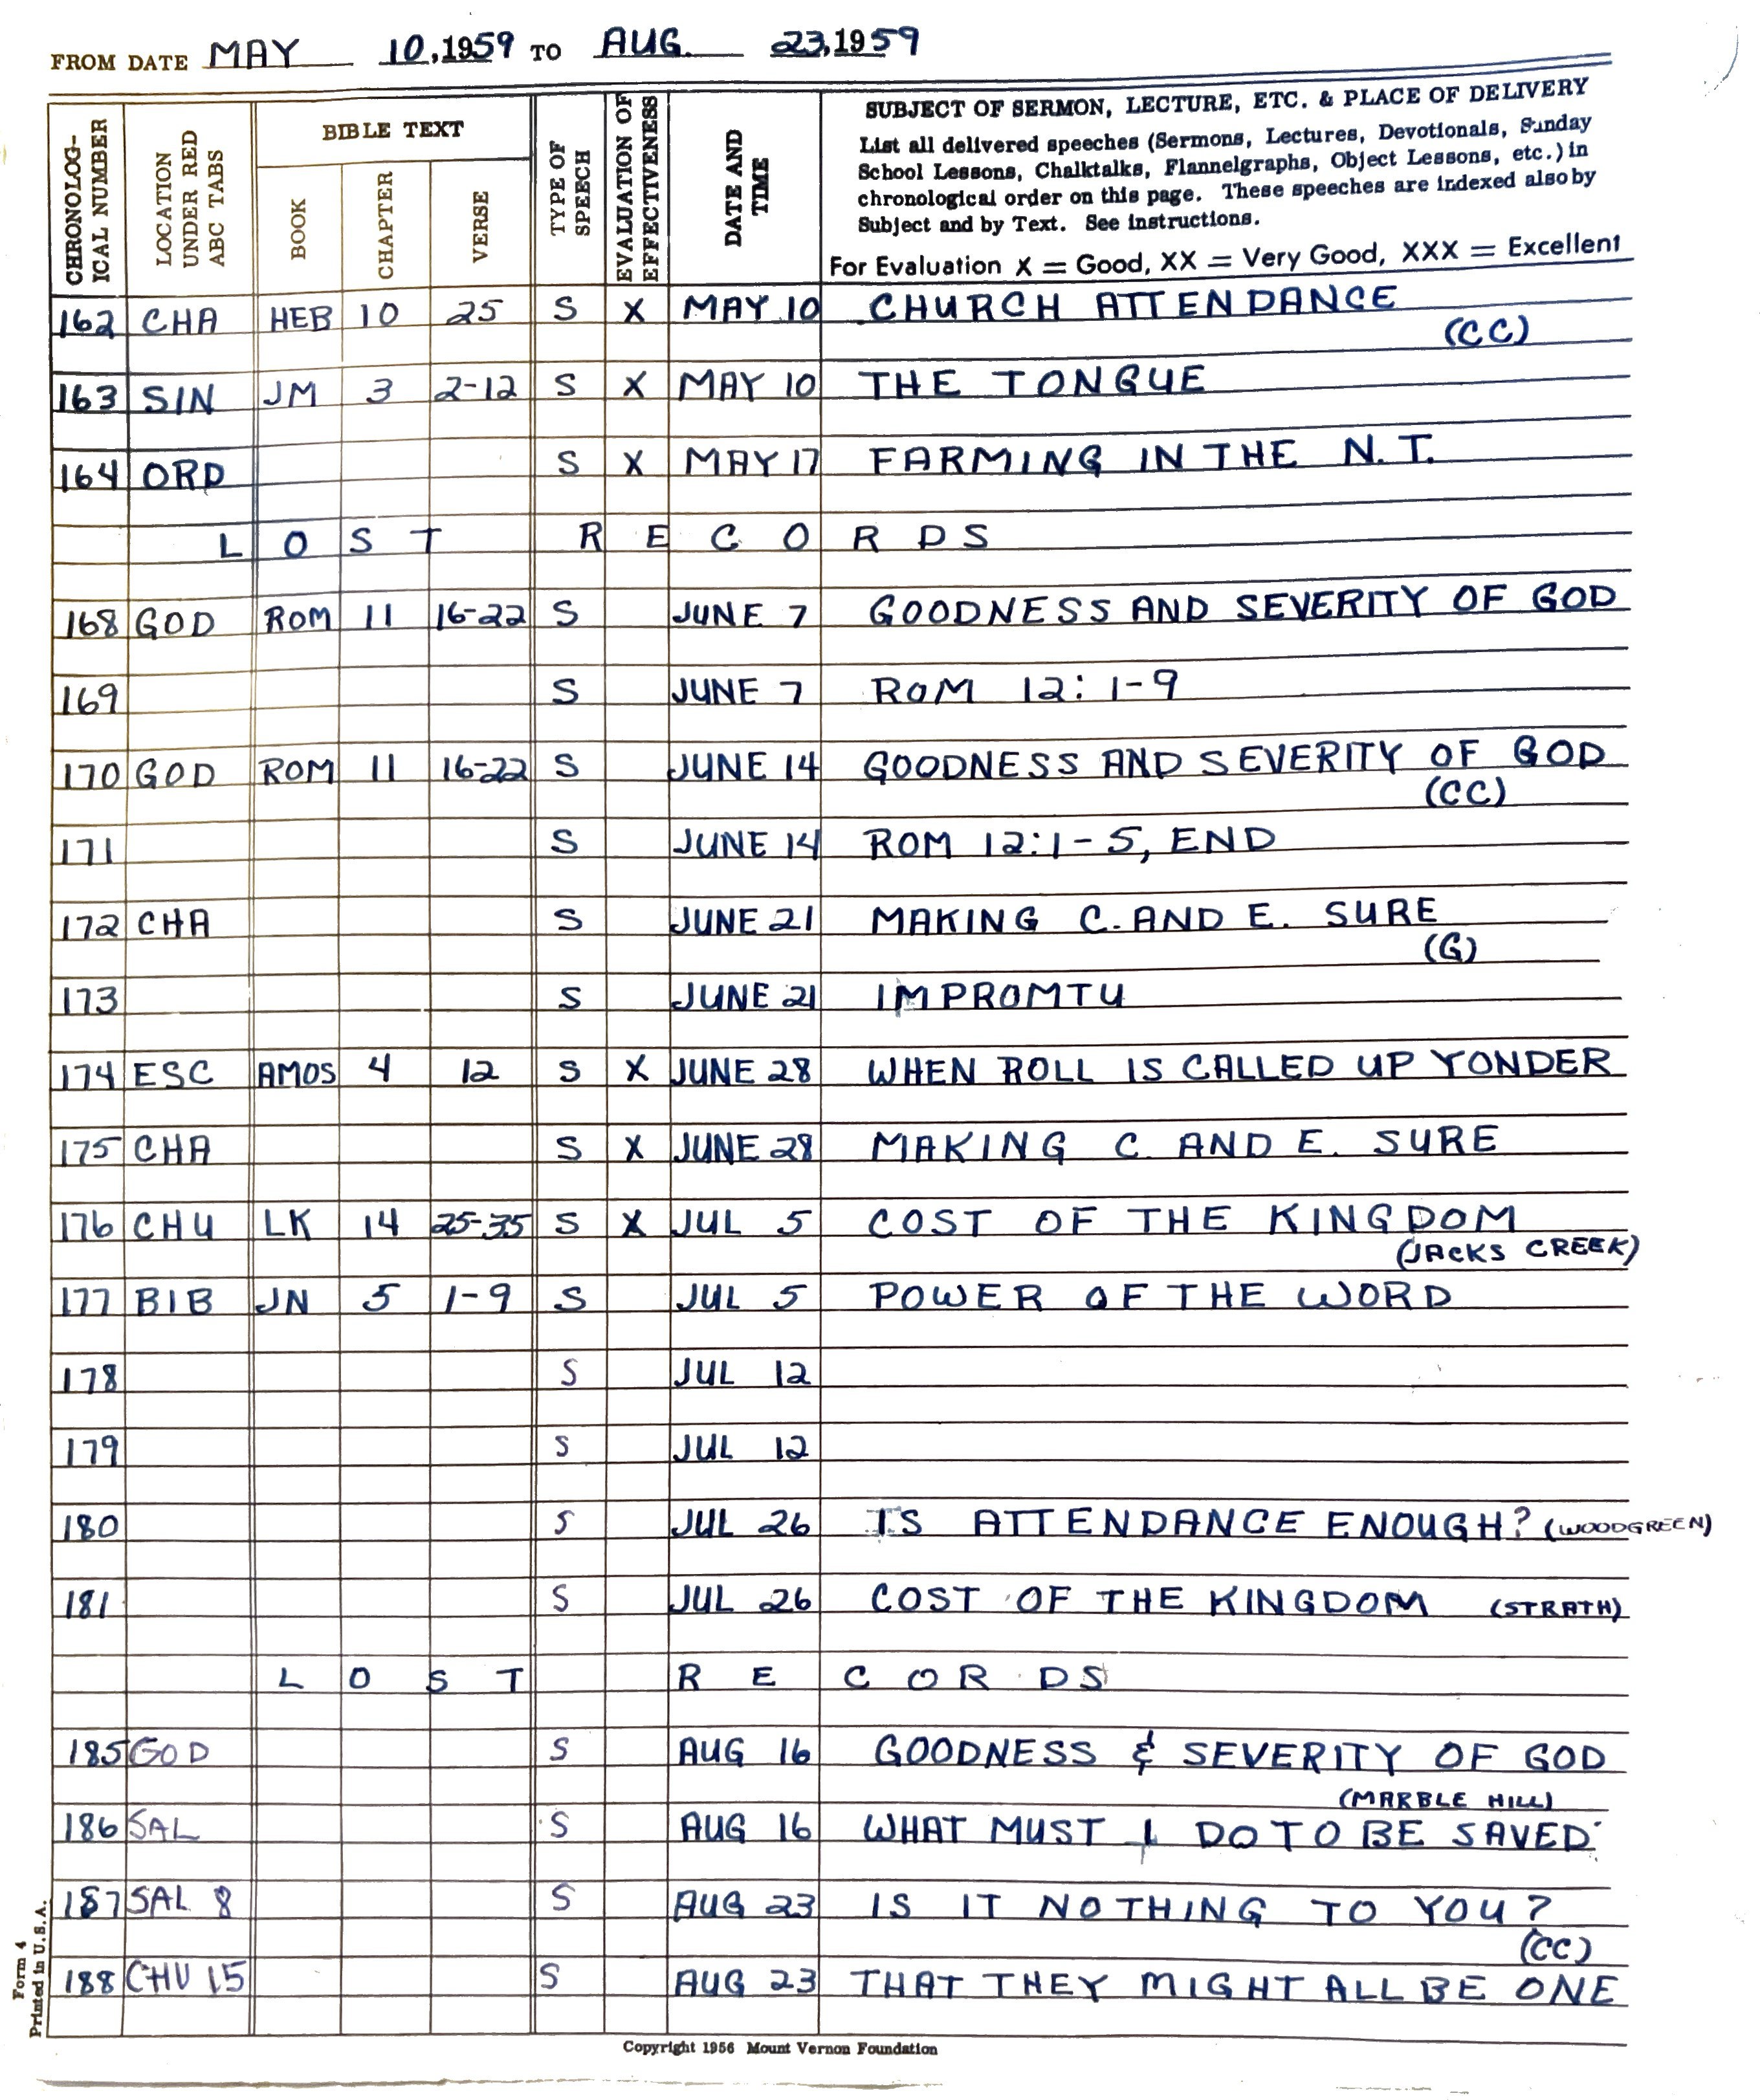 FROM DATE MAY 10, 1959 TO AUG. 23, 1959
CHRONOLOG-ICAL NUMBER
LOCATION UNDER RED ABC TABS
BIBLE TEXT
BOOK
CHAPTER
VERSE
TYPE OF SPEECH
EVALUATION OF EFFECTIVENESS
DATE AND TIME
SUBJECT OF SERMON, LECTURE, ETC. & PLACE OF DELIVERY
List all delivered speeches (Sermons, Lectures, Devotionals, Sunday
School Lessons, Chalktalks, Flannelgraphs, Object Lessons, etc.) in
chronological order on this page. These speeches are indexed also by
Subject and by Text. See instructions.
For Evaluation X = Good, XX = Very Good, XXX = Excellent
162 CHA HEB 10 25 S X MAY 10 CHURCH ATTENDANCE
(CC)
163 SIN JM 3 2-12 S X MAY 10 THE TONGUE
164 ORD S X MAY 17 FARMING IN THE N.T.
LOST RECORDS
168 GOD ROM 11 16-22 S JUNE 7 GOODNESS AND SEVERITY OF GOD
169 S JUNE 7 ROM 12:1-9
170 GOD ROM 11 16-22 S JUNE 14 GOODNESS AND SEVERITY OF GOD
(CC)
171 S JUNE 14 ROM 12:1-5, END
172 CHA S JUNE 21 MAKING C. AND E. SURE
(G)
173 S JUNE 21 IMPROMTU
174 ESC AMOS 4 12 S X JUNE 28 WHEN ROLL IS CALLED UP YONDER
175 CHA S X JUNE 28 MAKING C. AND E. SURE
176 CHU LK 14 25-35 S X JUL 5 COST OF THE KINGDOM
(JACKS CREEK)
177 BIB JN 5 1-9 S JUL 5 POWER OF THE WORD
178 S JUL 12
179 S JUL 12
180 S JUL 26 IS ATTENDANCE ENOUGH? (WOODGREEN)
181 S JUL 26 COST OF THE KINGDOM (STRATH)
LOST RECORDS
185 GOD S AUG 16 GOODNESS & SEVERITY OF GOD
(MARBLE HILL)
186 SAL S AUG 16 WHAT MUST I DO TO BE SAVED
187 SAL 8 S AUG 23 IS IT NOTHING TO YOU?
(CC)
188 CHU 15 S AUG 23 THAT THEY MIGHT ALL BE ONE
Form 4
Printed in U.S.A.
Copyright 1956 Mount Vernon Foundation